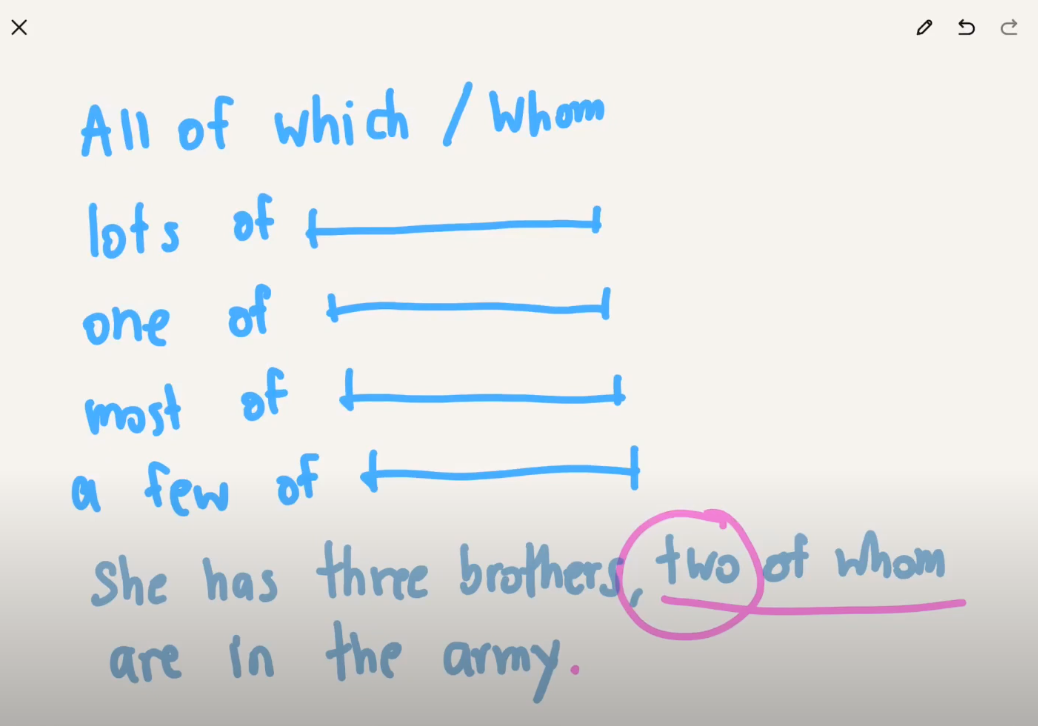 All of which / whom
lots of
one of
most of
a few of
She has three brothers, two of whom
are in the army.